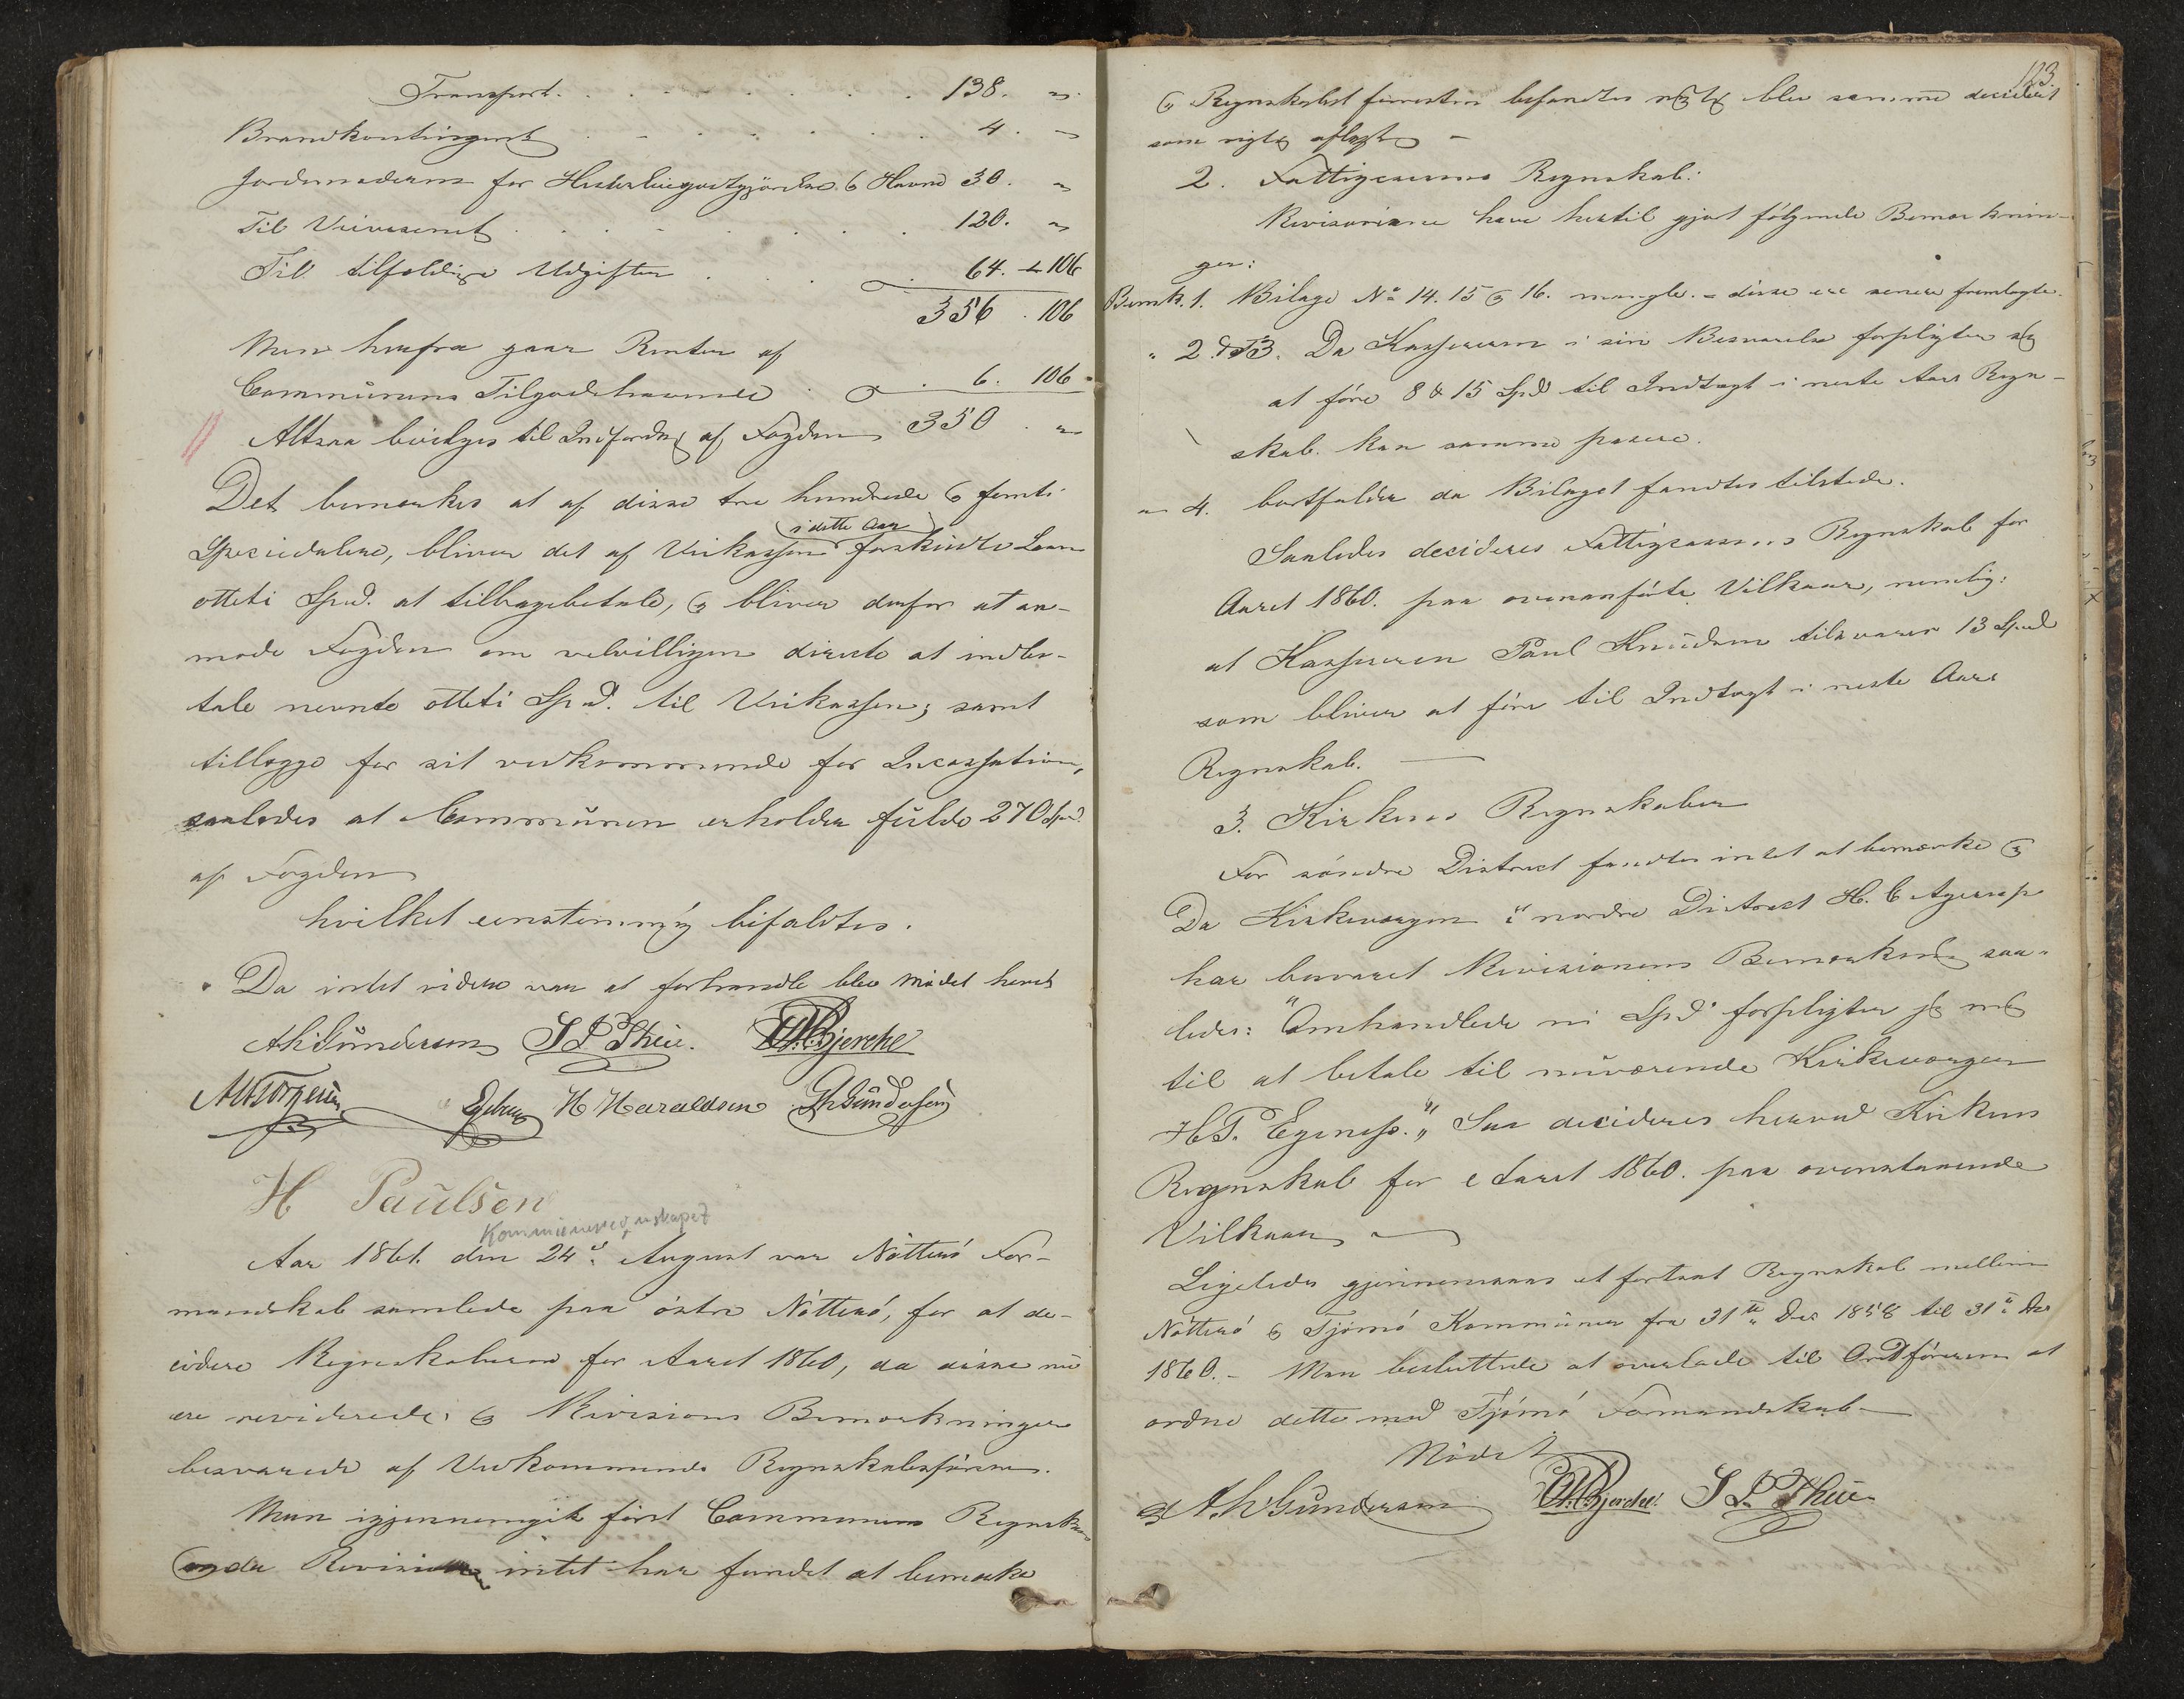 Transport. . . . . . . . . 138. "
Brandkontingent . . . . . . . 4. "
Jordemoderen for 6 Havne 30. "
Til Veivæsenet . . . . . . . 120. "
Til tilfældige Udgifter . . . 64. 106
356. 106
Men herfra gaar Renter af
Communens Tilgodehavende . . 6. 106
Altsaa bevilges til Indfordrg af Fogden 350. "
Det bemærkes at af disse tre hundrede og femti
i dette Aar
Speciedalere, bliver det af Veikassen forskudte Laan
otteti Spd. at tilbagebetale, og bliver derfor at an-
mode Fogden om velvilligen directe at indbe-
tale nevnte otteti Spd. til Veikassen; samt
tillægge for sit vedkommende for Incassation,
saaledes at Communen erholder fulde 270 Spd.
af Fogden
hvilket eenstemmig bifaldtes.
Da intet videre var at forhandle blev Mödet hævet
A Gundersen S L Thue. Bjerche
H Haraldsen Gundersen
H Paulsen
Kommuneregnskapet
Aar 1861. den 24d. August var Nötterö For-
mandskab samlede paa östre Nötterö, for at de-
cidere Regnskaberne for Aaret 1860, da disse nu
ere reviderede og Revisions Bemærkninger
besvarede af Vedkommende Regnskabsförere.
Man igjennemgik först Communens Regnskab
og da Revisionen intet har fundet at bemærke
123.
og Regnskabet forresten befandtes rigtig blev samme decideret
som rigtig aflagt –
2. Fattigcassens Regnskab:
Revisorerne have hertil gjort fölgende Bemærknin-
ger:
Bemk. 1. Bilage No 14. 15 og 16. mangle. – disse ere senere fremlagte.
" 2 & 3. Da Kassereren i sin Besvarelse forpligter sig
at före 8 & 15 Spd til Indtægt i neste Aars Regn-
skab. kan samme passere.
" 4. bortfalder da Bilaget fandtes tilstede.
Saaledes decideres Fattigcassens Regnskab for
Aaret 1860. paa ovenanförte Vilkaar, nemlig:
at Kassereren Paul Knudsen tilsvarer 13 Spd
som bliver at före til Indtægt i neste Aars
Regnskab. —
3. Kirkens Regnskaber
For söndre District fandtes intet at bemærke og
Da Kirkevergen i nordre District H. C Agerup
har besvaret Revisionens Bemærkning saa-
ledes: "Omhandlede ni Spd forpligter jeg mig
til at betale til nuværende Kirkeværger
H P. Egeness." Saa decideres herved Kirkens
Regnskab for Aaret 1860. paa ovenstaaende
Vilkaar —
Ligeledes gjennemsaaes et fortsat Regnskab mellem
Nötterö og Tjömö Kommuner fra 31te Dec 1858 til 31te Dec
1860. – Man besluttede at overlade til Ordföreren at
ordne dette med Tjömö Formandskab –
Mödet
A. Gundersen Bjerche S L Thue